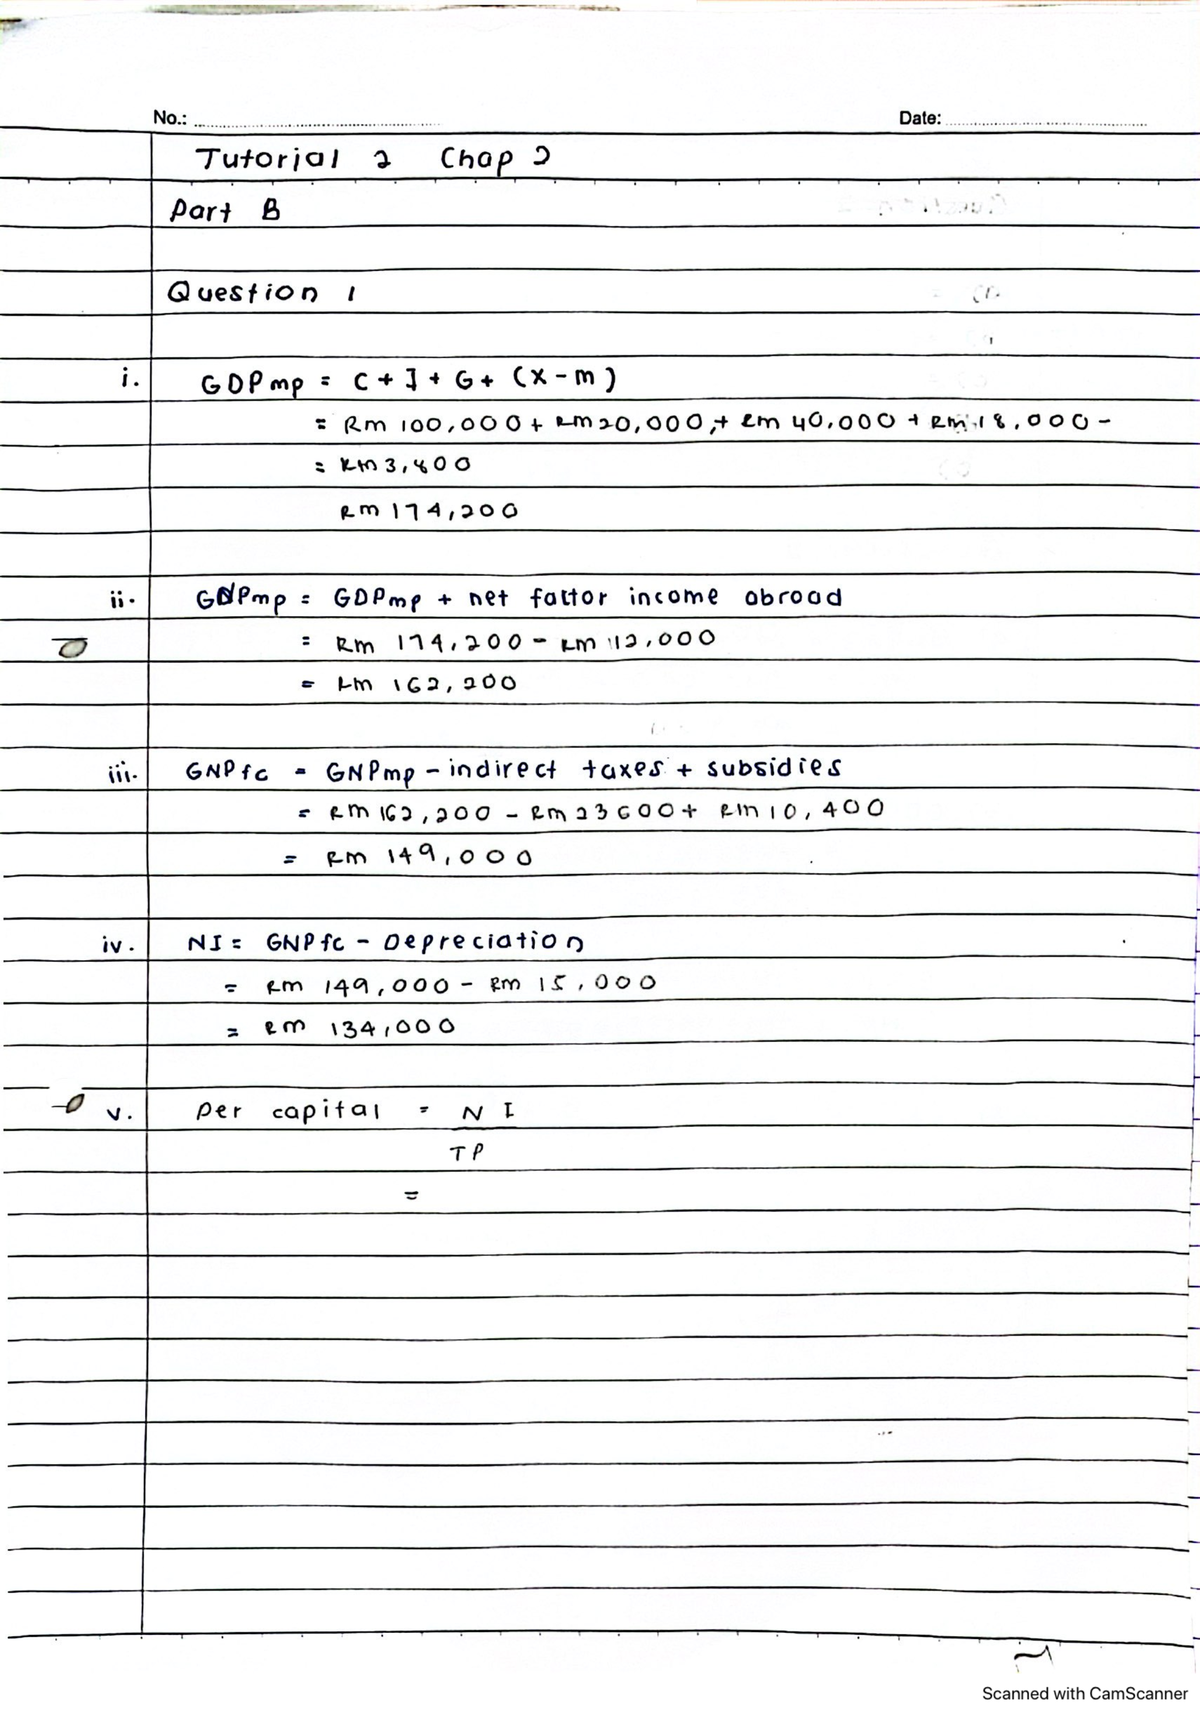 No.:
Date:
Tutorial 2 Chap 2
Part B
Question 1
i. GDPmp = C + I + G + (X - m)
= Rm 100,000 + Rm 20,000, + Rm 40,000 + Rm 18,000 -
= Rm 3,800
Rm 174,200
ii. GNPmp = GDPmp + net factor income abroad
= Rm 174,200 - Rm 112,000
= Rm 162,200
iii. GNPfc = GNPmp - indirect taxes + subsidies
= Rm 162,200 - Rm 23600 + Rm 10,400
= Rm 149,000
iv. NI = GNPfc - Depreciation
= Rm 149,000 - Rm 15,000
= Rm 134,000
v. per capital = NI
TP
=
Scanned with CamScanner